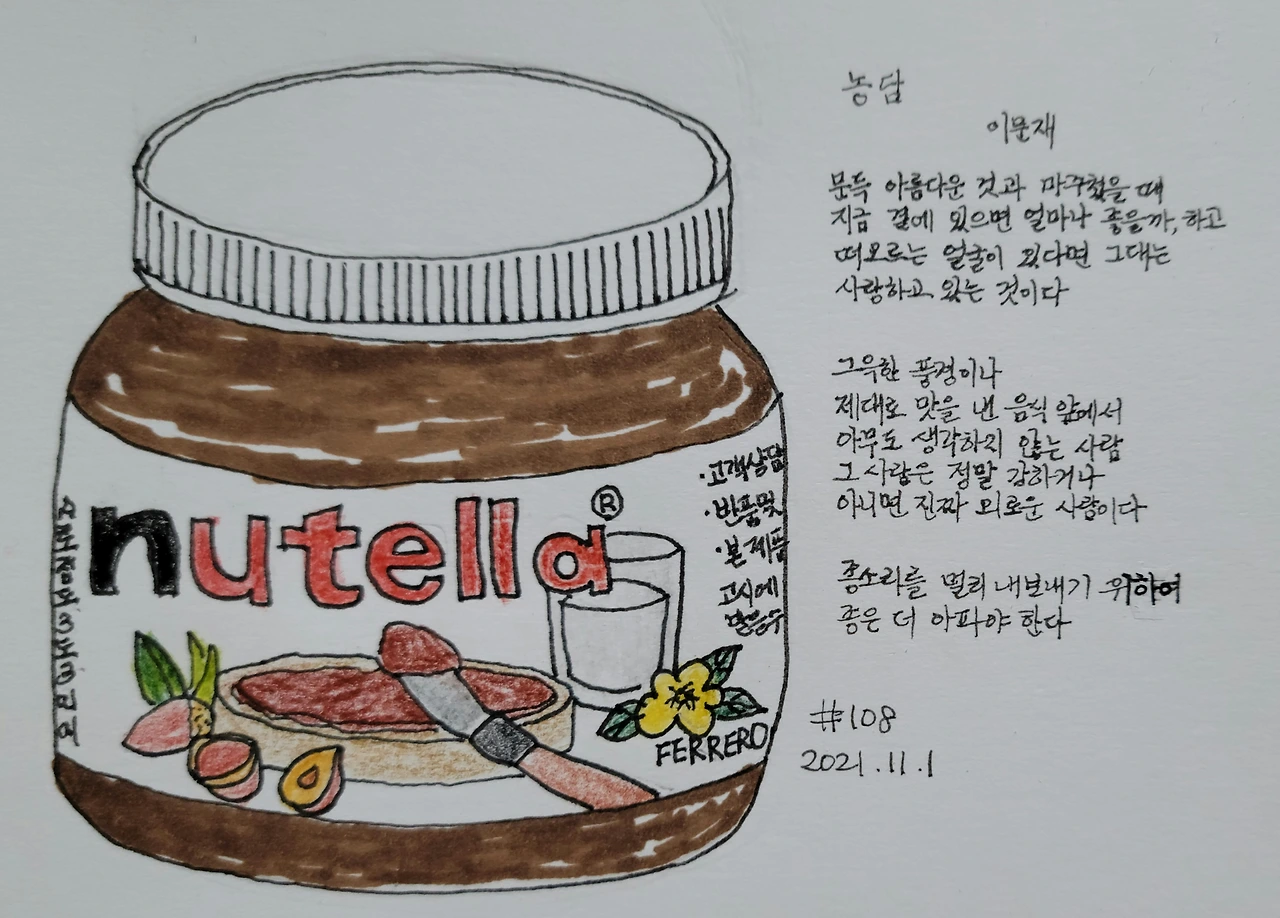 농담
이문재
문득 아름다운 것과 마주쳤을 때
지금 곁에 있으면 얼마나 좋을까, 하고
떠오르는 얼굴이 있다면 그대는
사랑하고 있는 것이다
그윽한 풍경이나
제대로 맛을 낸 음식 앞에서
아무도 생각하지 않는 사람
그 사람은 정말 강하거나
아니면 진짜 외로운 사람이다
종소리를 멀리 내보내기 위하여
종은 더 아파야 한다
#108
2021.11.1
nutella®
·고객상담
·반품및
·본 제품
고시에
FERRERO